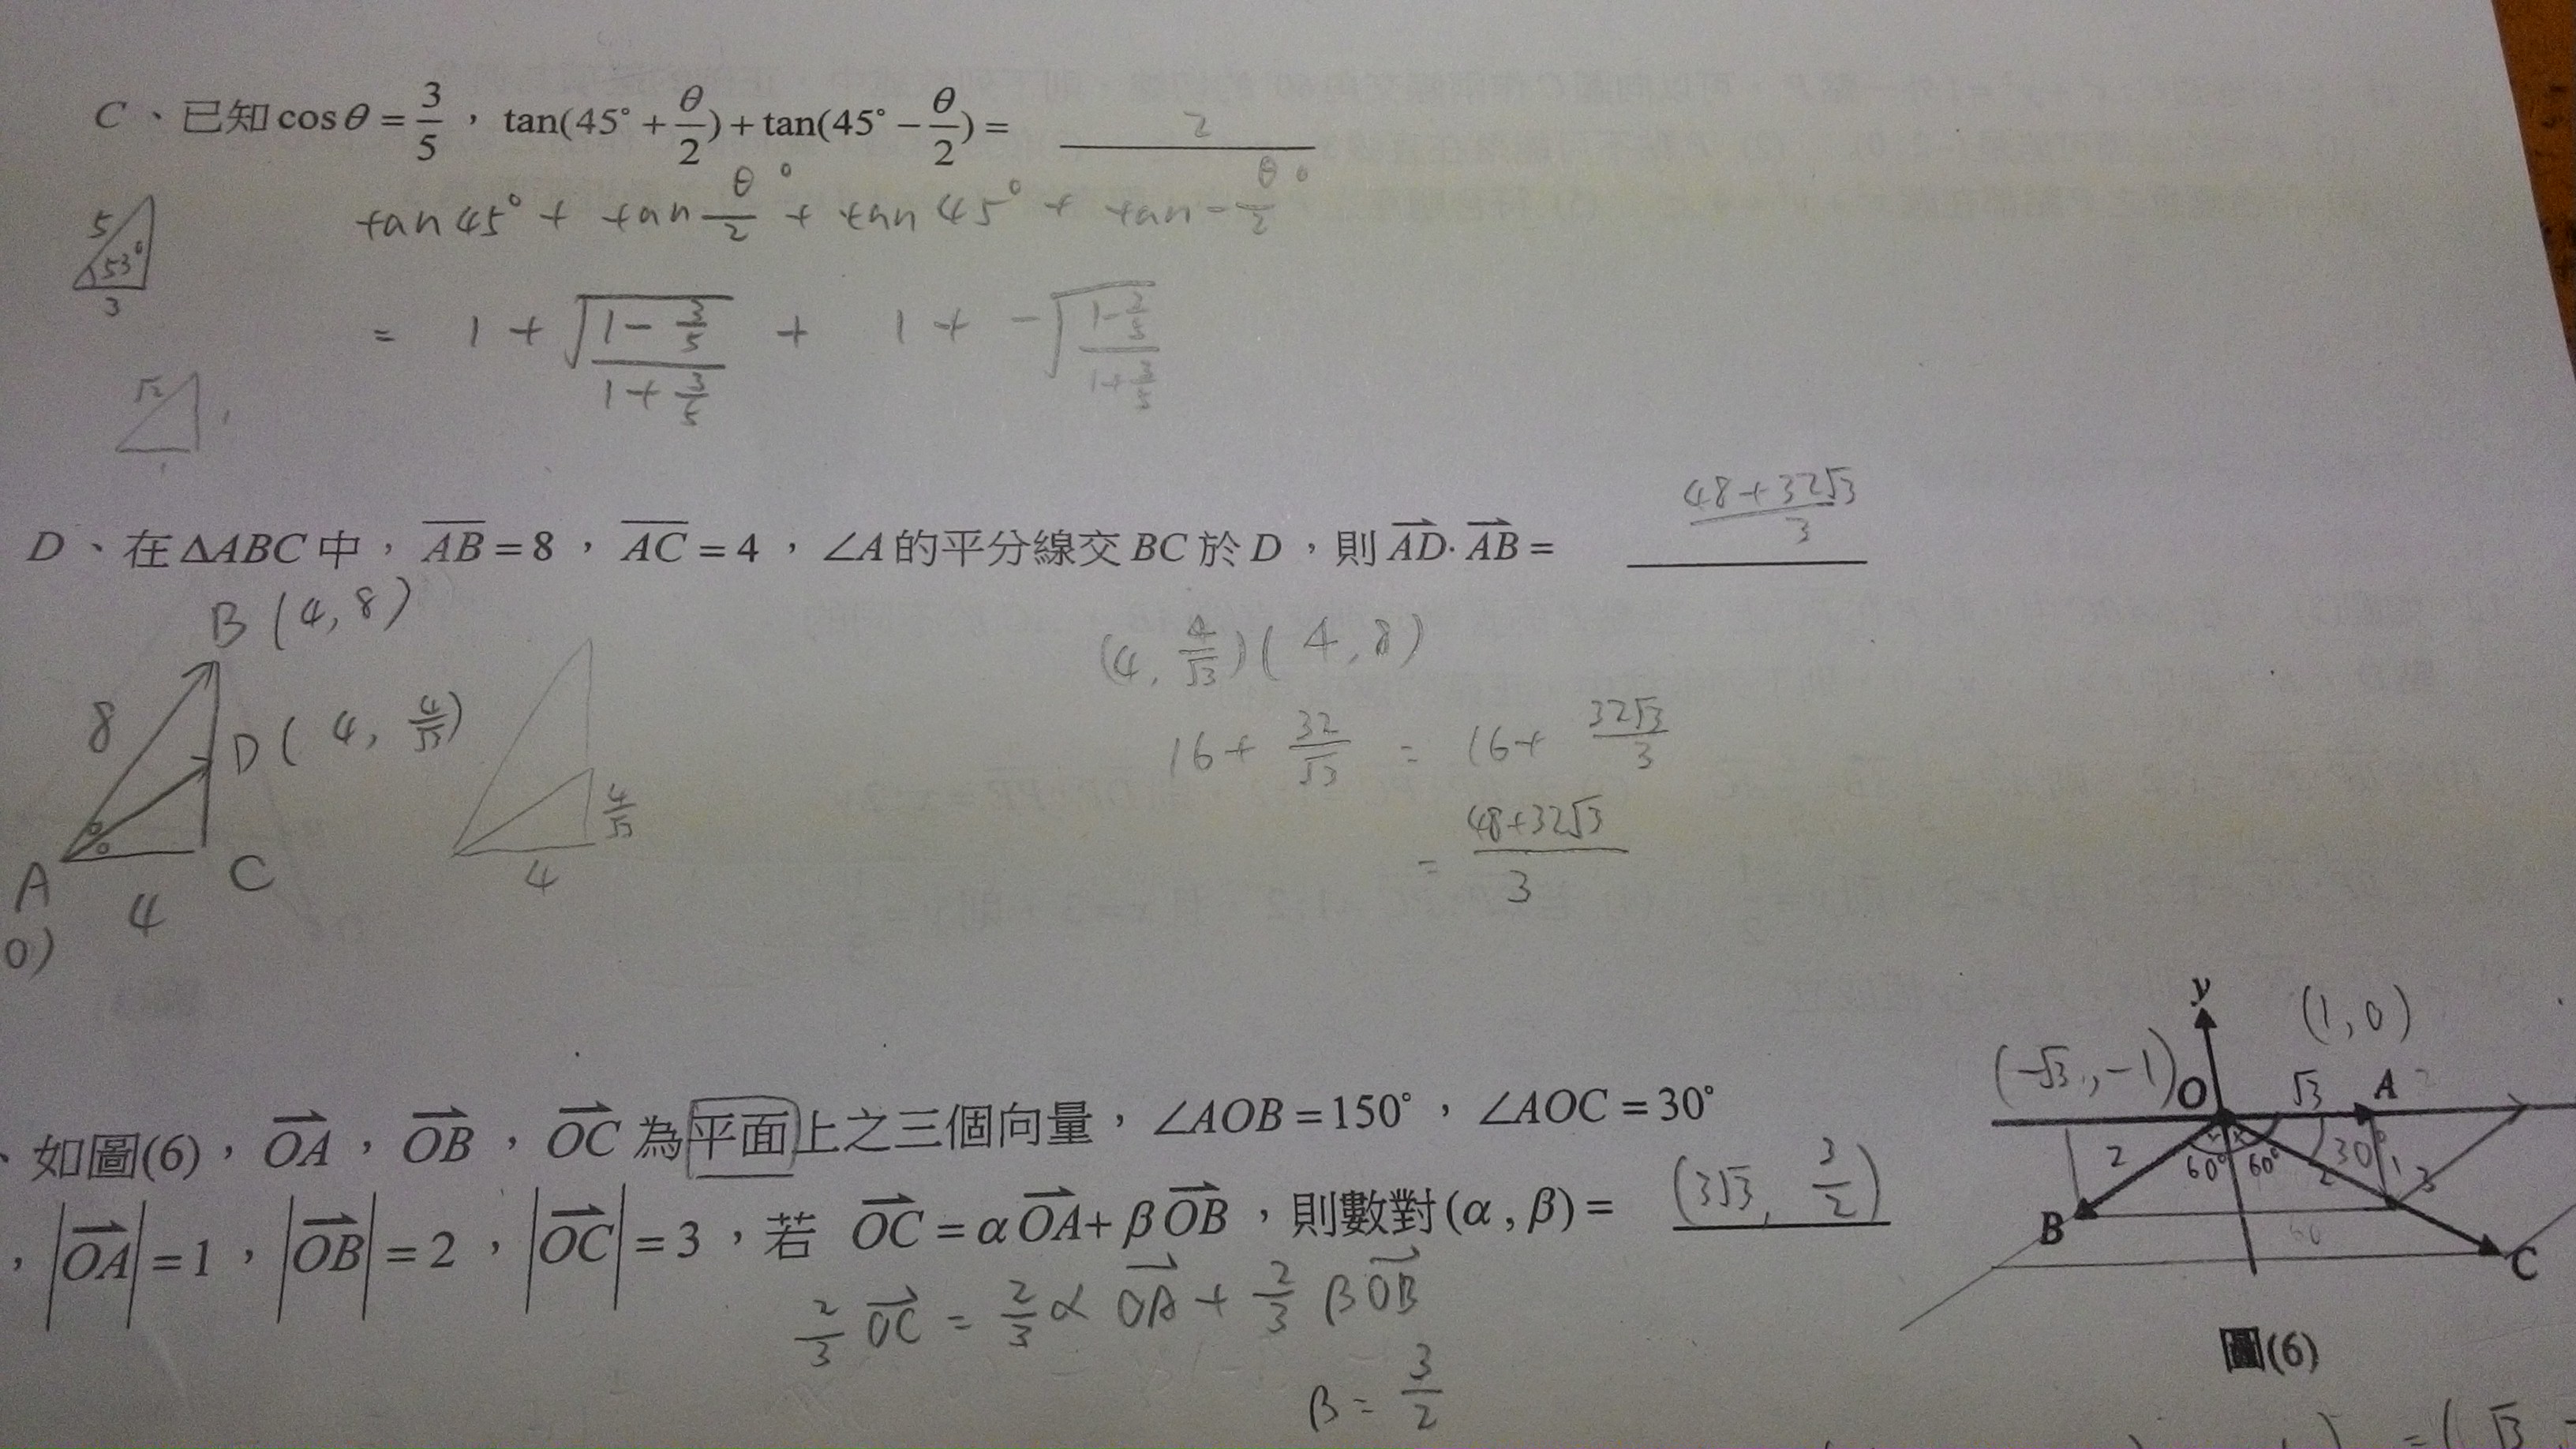 C、已知 cosθ = 3/5，tan(45° + θ/2) + tan(45° − θ/2) = 2
tan 45° + tan θ/2° + tan 45° + tan − θ/2°
5 53° 3
= 1 + √((1 − 3/5)/(1 + 3/5)) + 1 + −√((1 − 3/5)/(1 + 3/5))
√2 1 1
D、在 ΔABC 中，AB = 8，AC = 4，∠A 的平分線交 BC 於 D，則 AD · AB = (48+32√3)/3
B (4, 8)
(4, 4/√3)(4, 8)
8 D (4, 4/√3)
16 + 32/√3 = 16 + 32√3/3
4/√3
= (48+32√3)/3
A C 4
4
0)
、如圖(6)，OA，OB，OC 為平面上之三個向量，∠AOB = 150°，∠AOC = 30°
，|OA| = 1，|OB| = 2，|OC| = 3，若 OC = αOA + βOB，則數對(α , β) = (3√3, 3/2)
2/3 OC = 2/3 α OA + 2/3 β OB
β = 3/2
y (1, 0)
(−√3, −1) O √3 A 2
2 60° 60° 30 2 1 3
B 60 C
圖(6)
= (√3